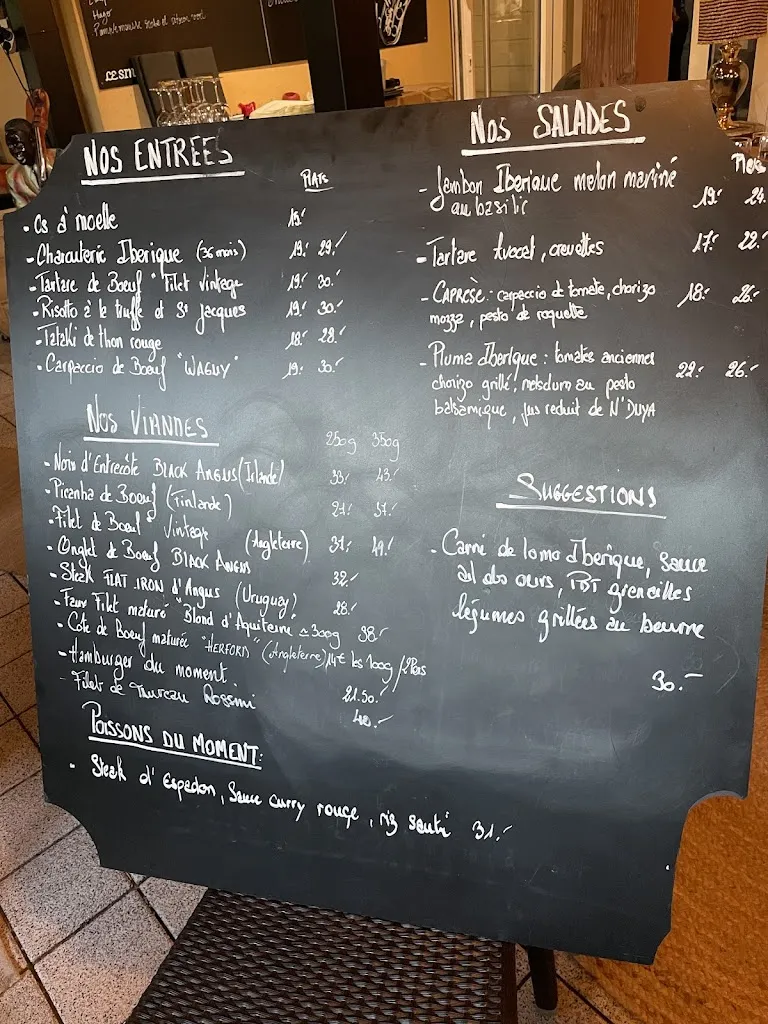 Nos ENTREES
PLATS
- Os à moelle 15.-
- Charcuterie Iberique (36 mois) 19.- 29.-
- Tartare de Boeuf "Filet Vintage 19.- 30.-
- Risotto à la truffe et St Jacques 19.- 30.-
- Tataki de thon rouge 18.- 28.-
- Carpaccio de Boeuf "WAGUY" 19.- 30.-
Nos VIANDES
250g 350g
- Noix d'Entrecôte BLACK ANGUS (Irlande) 33.- 43.-
- Picanha de Boeuf (Finlande) 27.- 37.-
- Filet de Boeuf "Vintage (Angleterre) 49.-
- Onglet de Boeuf BLACK ANGUS 32.-
- Steak FLAT IRON d'Angus (Uruguay) 28.-
- Faux Filet maturé "Blond d'Aquitaine ≃ 300g 38.-
- Côte de Boeuf maturée "HERFORD" (Angleterre) 14€ les 100g /2Pers
- Hamburger du moment. 21.50.-
- Filet de Rossini 40.-
POISSONS DU MOMENT:
- Steak d'Espadon, Sauce curry rouge, riz sauté 31.-
Nos SALADES
- Jambon Iberique melon mariné 19.- 24.
au basilic
- Tartare Avocat, crevettes 17.- 22.-
- CAPRESE: carpaccio de tomate, chorizo 18.- 26.-
mozza, pesto de roquette
- Pluma Iberique: tomates anciennes 22.- 26.-
chorizo grillé, au pesto
balsamique, jus reduit de N'DUYA
SUGGESTIONS
- Carré de lomo Iberique, Sauce
ail des ours, PDT grenailles
légumes grillées au beurre
30.-